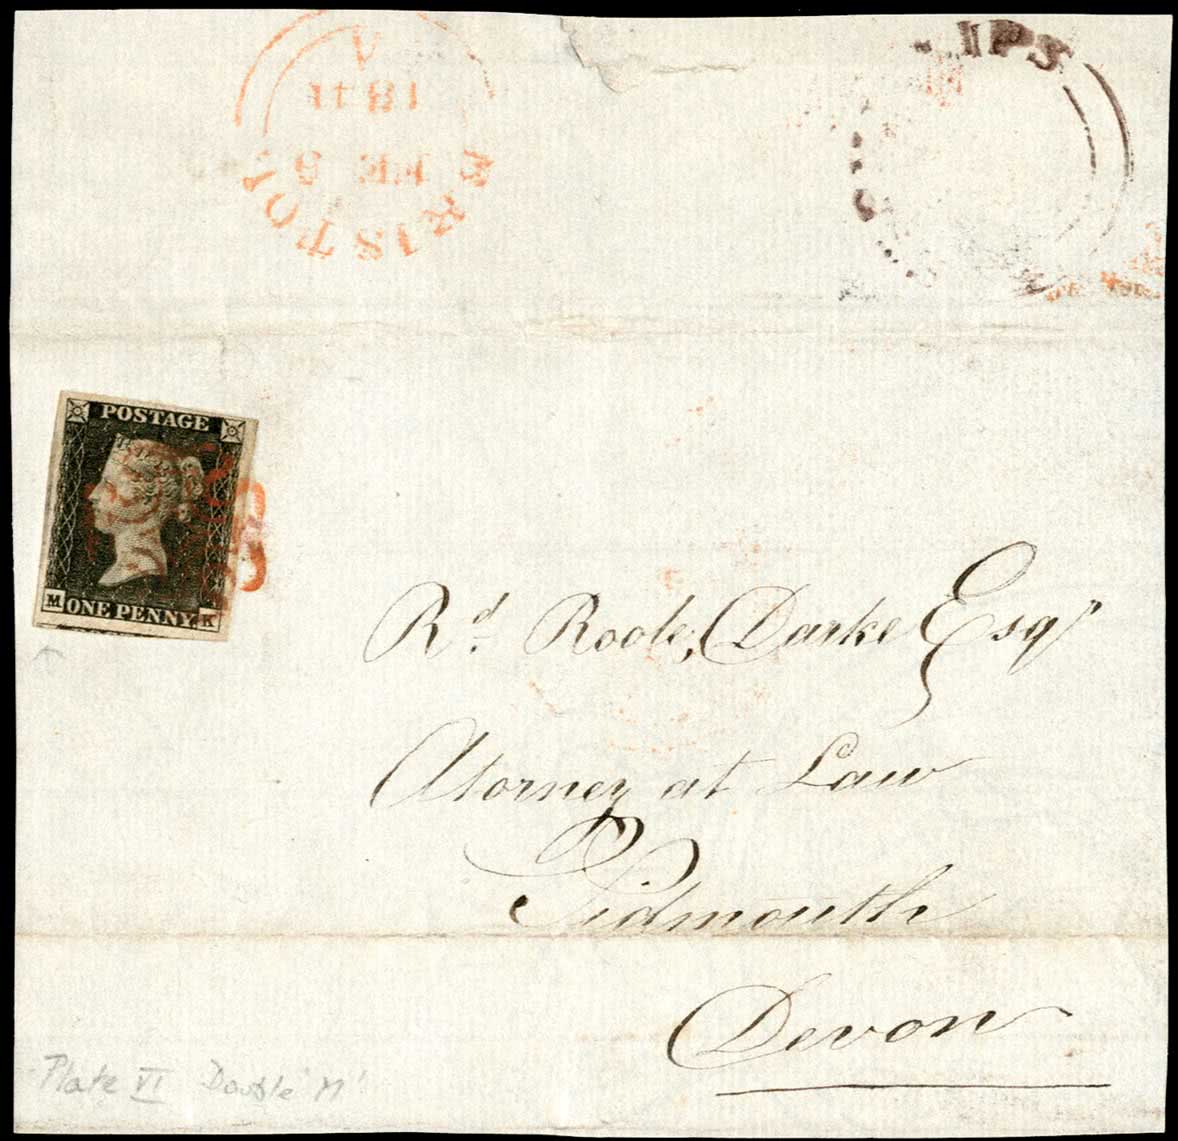 BRISTOL
FE 8
1841
A
IPS
POSTAGE
M ONE PENNY K
Rd. Roole, Darke Esqr
Atorney at Law
Sidmouth
Devon
Plate VI Double 'M'